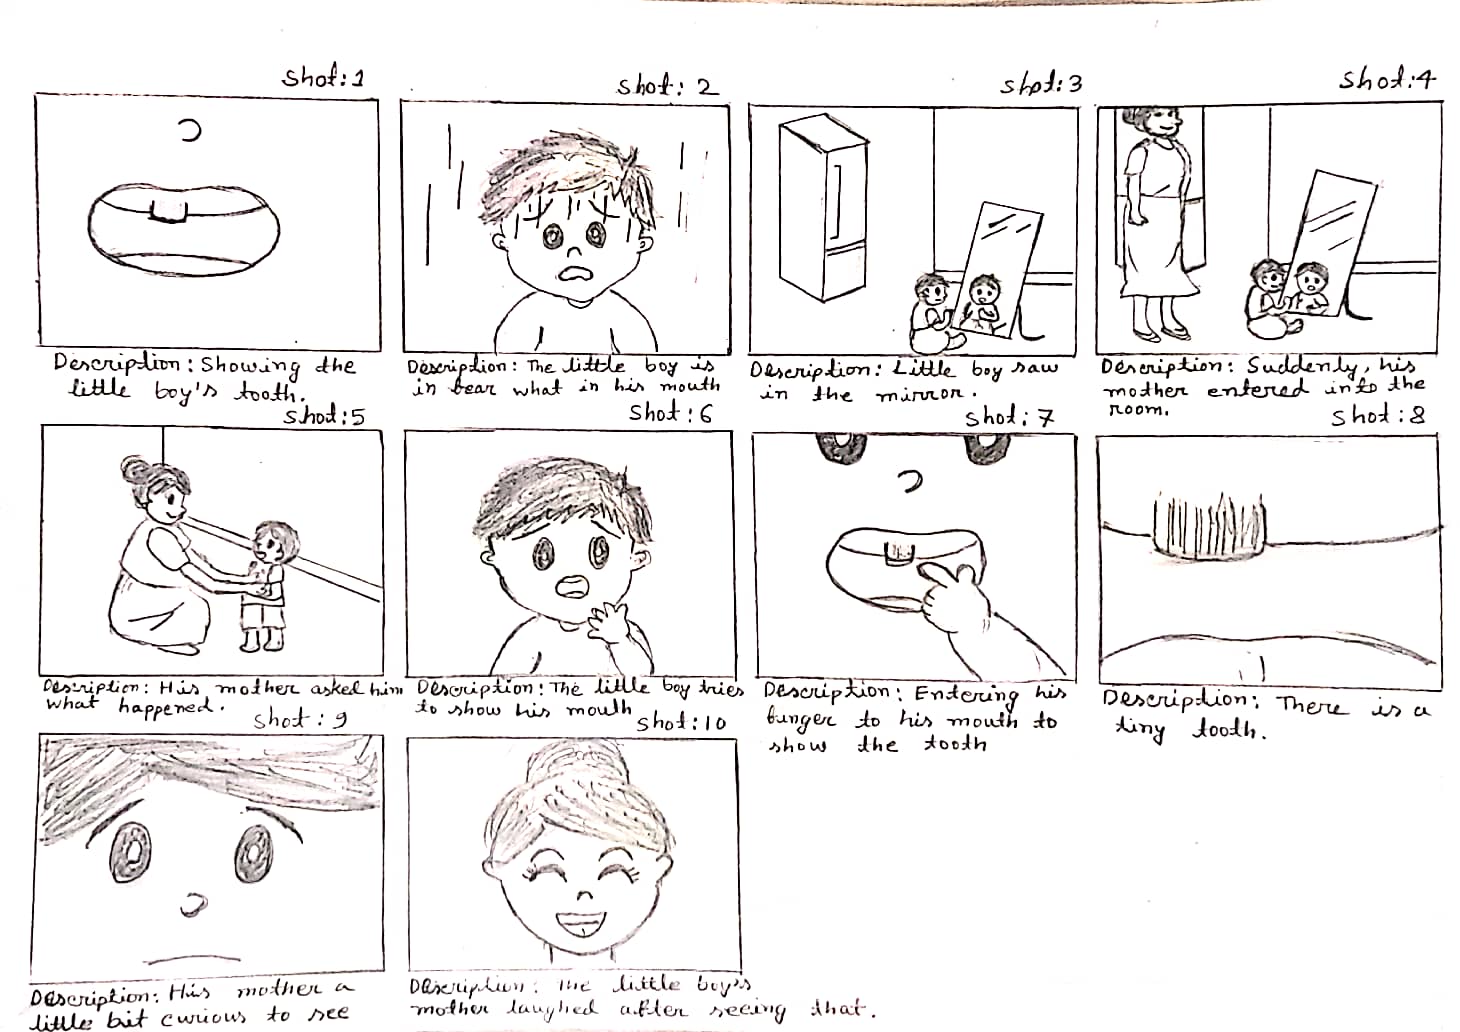 Shot:1
Description: Showing the
little boy's tooth.
Shot: 2
Description: The little boy is
in fear what in his mouth
Shot:3
Description: Little boy saw
in the mirror.
Shot:4
Description: Suddenly, his
mother entered into the
room.
Shot:5
Description: His mother asked him
what happened.
Shot:6
Description: The little boy tries
to show his mouth
Shot: 7
Description: Entering his
funger to his mouth to
show the tooth
Shot:8
Description: There is a
tiny tooth.
Shot:9
Description: His mother a
little bit curious to see
Shot:10
Description: The little boy's
mother laughed after seeing that.